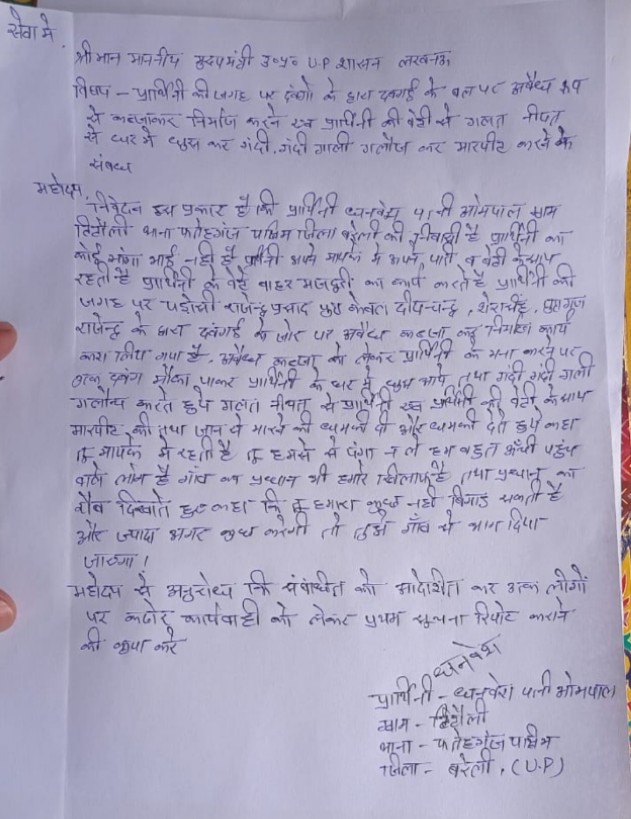 सेवा मे,
श्रीमान माननीय मुख्यमंत्री उ०प्र० U.P शासन लखनऊ
विषय - प्रार्थिनी की जगह पर दबंगो के द्वारा दबंगई के बल पर अबैध रूप
से कब्जाकर निर्माण करने एव प्रार्थिनी की बेटी से गलत नीयत
से घर मे घुस कर गंदी, गंदी गाली गलौज कर मारपीट करने के
संबध
महोदय,
निवेदन इस प्रकार है कि प्रार्थिनी धनवेश पत्नी ओमपाल ग्राम
टिटौली थाना फतेहगंज पश्चिम जिला बरेली की नीवासी है प्रार्थिनी का
कोई भाई नही है प्रार्थिनी अपने मायके मे अपने पति व बेटी के साथ
रहती है प्रार्थिनी के बेटे बाहर मजदूरी का कार्य करते है प्रार्थिनी की
जगह पर पडोसी राजेन्द्र प्रसाद पुत्र केवल दीपचन्द्र, शेरसिंह,
राजेन्द्र के द्वारा दबंगई के जोर पर अबैध कब्जा कर निर्माण कार्य
करा लिया गया है, अबैध कब्जा को लेकर प्रार्थिनी के मना करने पर
उक्त दबंग मौका पाकर प्रार्थिनी के घर मे घुस आये तथा गंदी गंदी गाली
गलौच करते हुये गलत नीयत से प्रार्थिनी एव प्रार्थिनी की बेटी के साथ
मारपीट की तथा जान से मारने की धमकी दी और धमकी देते हुये कहा
तू मायके मे रहती है तू हमसे से पंगा न ले हम बहुत ऊँची पहुंच
वाले लोग है गाँव का प्रधान भी हमारे है तथा प्रधान का
रौब दिखाते हुए कहा कि तू हमारा कुछ नही बिगाड सकती है
और ज्यादा अगर कुछ करेगी तो तुझे गाँव से भगा दिया
जाएगा।
महोदय से अनुरोध कि संबंधित को आदेशित कर उक्त लोगों
पर कठोर कार्यवाही को लेकर प्रथम सूचना रिपोट कराने
की कृपा करे
धनवेश
प्रार्थिनी - धनवेश पत्नी ओमपाल
ग्राम - टिटौली
थाना - फतेहगंज पश्चिम
जिला - बरेली, (U.P)